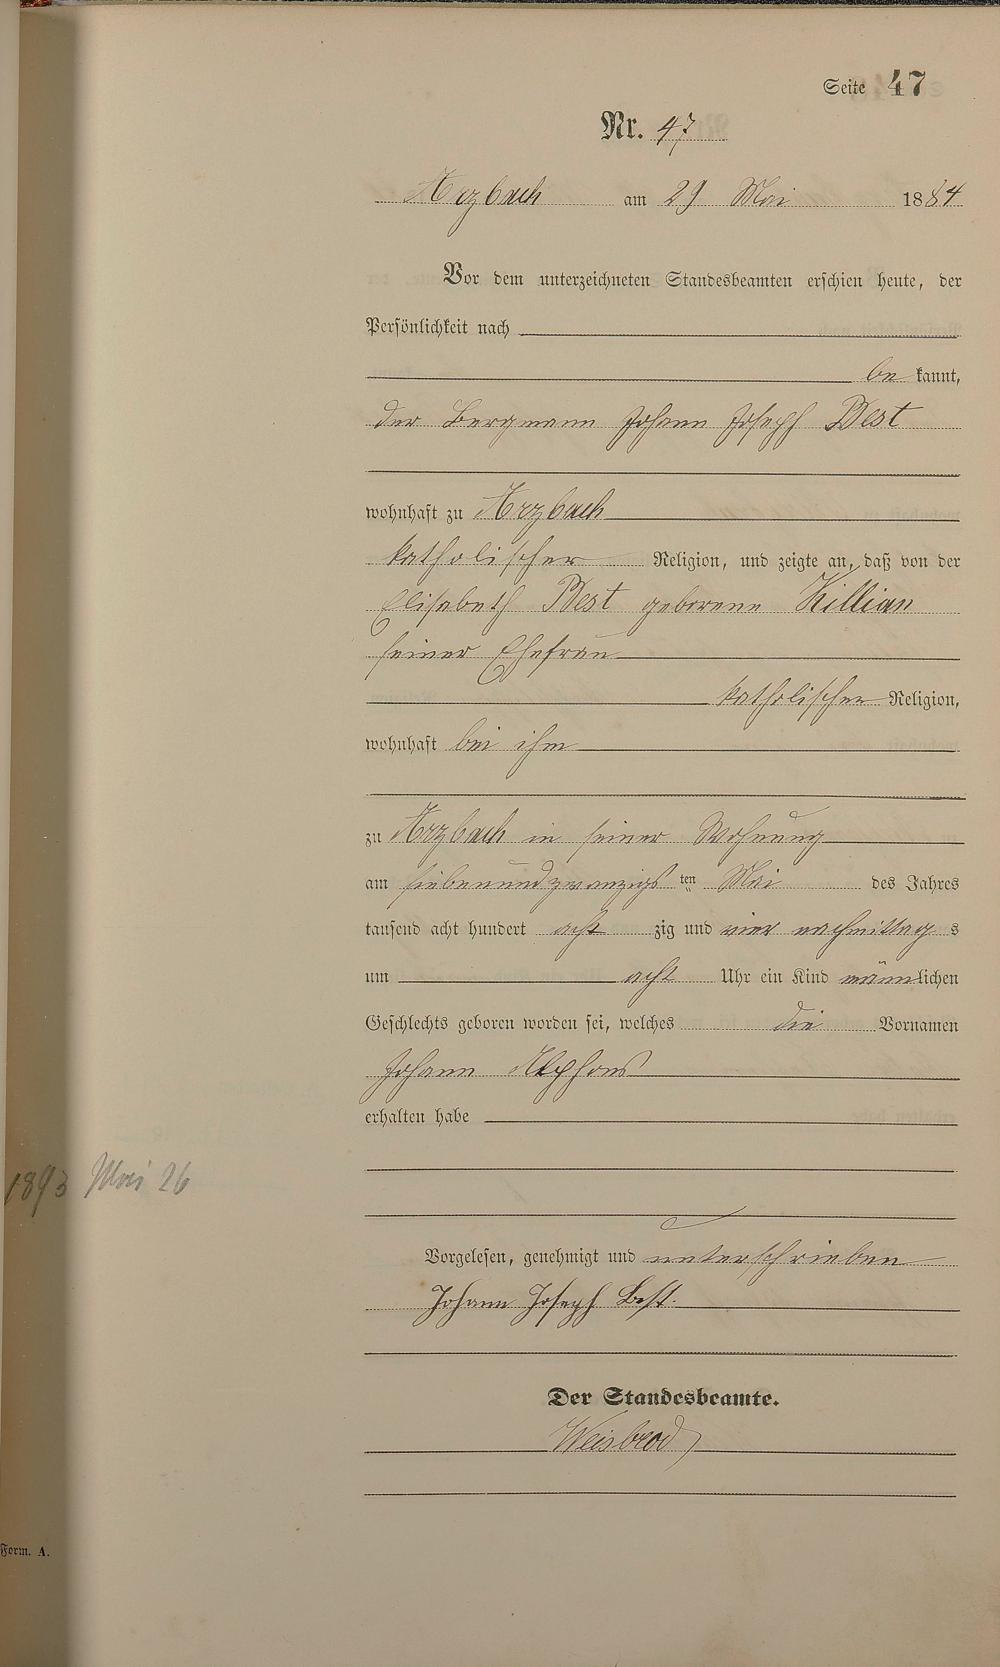 Seite 47
Nr. 47
Arzbach am 29 Mai 1884
Vor dem unterzeichneten Standesbeamten erschien heute, der
Persönlichkeit nach
be kannt,
der Bergmann Johann Joseph Best
wohnhaft zu Arzbach
katholischer Religion, und zeigte an, daß von der
Elisabeth Best geborene Killian
seiner Ehefrau
katholischer Religion,
wohnhaft bei ihm
zu Arzbach in seiner Wohnung
am siebenundzwanzigsten Mai des Jahres
tausend acht hundert acht zig und vier nachmittag s
um acht Uhr ein Kind männlichen
Geschlechts geboren worden sei, welches die Vornamen
Johann Alphons
erhalten habe
1893 Mai 26
Vorgelesen, genehmigt und unterschrieben
Johann Joseph Best.
Der Standesbeamte.
Weisbrod
Form. A.